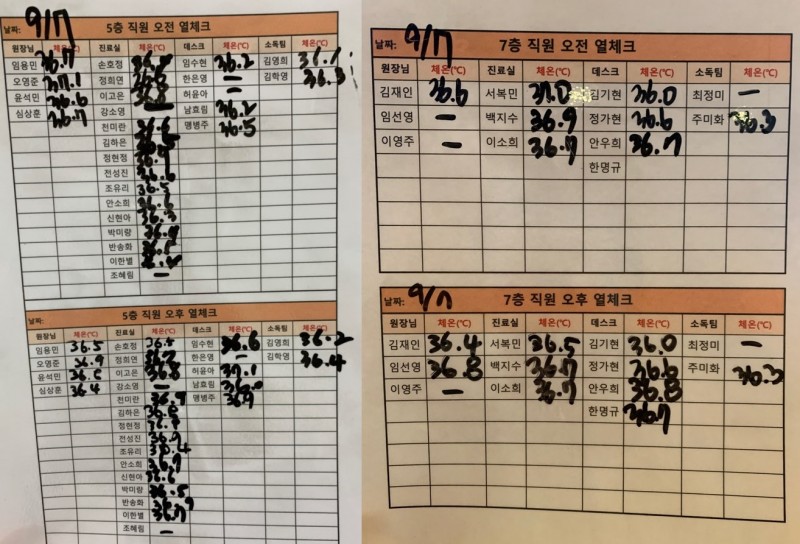 날짜: 9/17 5층 직원 오전 열체크
원장님 체온(℃) 진료실 체온(℃) 데스크 체온(℃) 소독팀 체온(℃)
임용민 36.7 손호정 임수현 36.2 김영희 36.7
오영준 37.1 정희연 한은영 — 김학영 36.3
윤석민 36.6 이고은 허윤아 —
심상훈 36.7 강소영 — 남효림 36.2
천미란 36.6 맹병주 36.5
김하은
정현정 36.7
전성진 36.6
조유리 36.5
안소희 36.6
신현아 36.3
박미랑
반송화 36.5
이한별
조혜림 —
날짜: 5층 직원 오후 열체크
원장님 체온(℃) 진료실 체온(℃) 데스크 체온(℃) 소독팀 체온(℃)
임용민 36.5 손호정 36.5 임수현 36.6 김영희 36.2
오영준 36.9 정희연 한은영 — 김학영 36.4
윤석민 이고은 36.8 허윤아 37.1
심상훈 36.4 강소영 — 남효림
천미란 36.9 맹병주 36.9
김하은
정현정
전성진 36.9
조유리
안소희 36.7
신현아
박미랑 36.5
반송화
이한별 36.7
조혜림 —
날짜: 9/17 7층 직원 오전 열체크
원장님 체온(℃) 진료실 체온(℃) 데스크 체온(℃) 소독팀 체온(℃)
김재인 36.6 서복민 37.0 김기현 36.0 최정미 —
임선영 — 백지수 36.9 정가현 36.6 주미화 36.3
이영주 — 이소희 36.7 안우희 36.7
한명규
날짜: 9/17 7층 직원 오후 열체크
원장님 체온(℃) 진료실 체온(℃) 데스크 체온(℃) 소독팀 체온(℃)
김재인 36.4 서복민 36.5 김기현 36.0 최정미 —
임선영 36.8 백지수 36.7 정가현 36.6 주미화 36.3
이영주 — 이소희 36.7 안우희 36.8
한명규 36.7